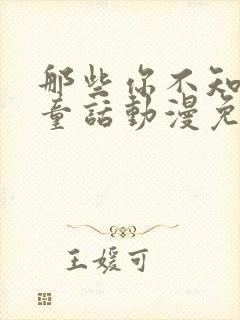 那些你不知
童話動漫免
王媛可